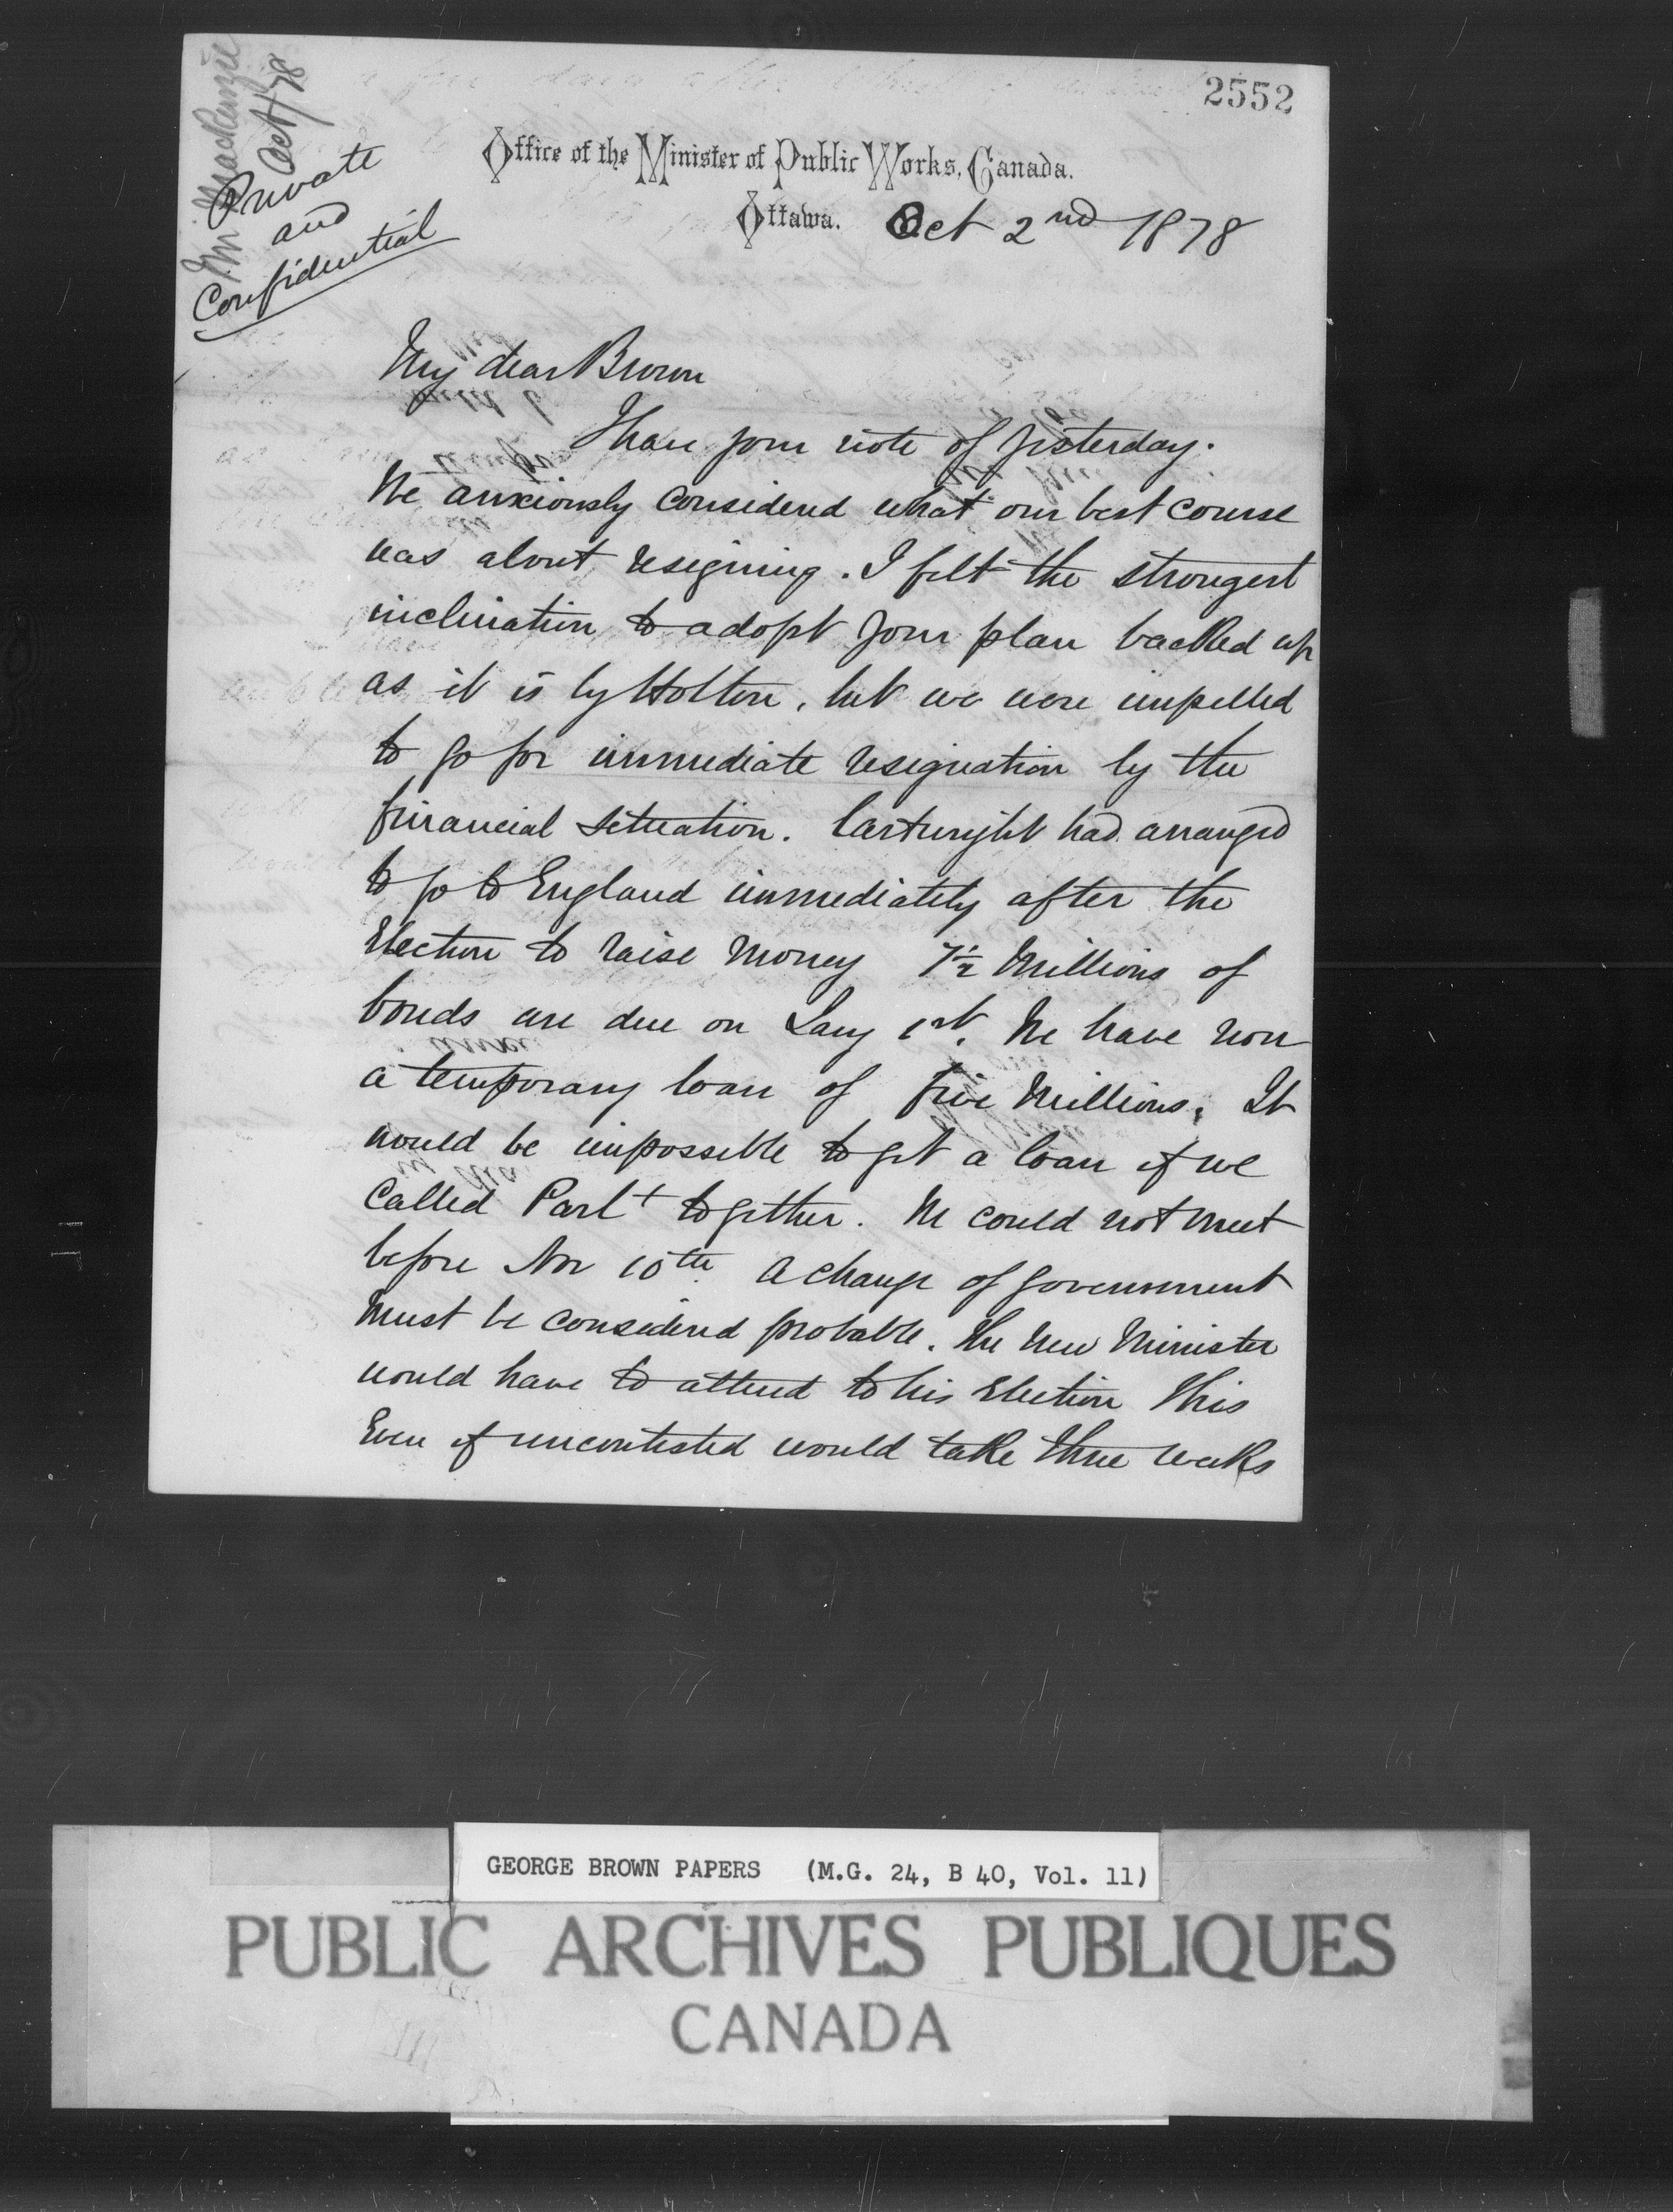 2552
Hn Mackenzie
Oct/78
Private
and
Confidential
Office of the Minister of Public Works, Canada.
Ottawa. Oct 2nd 1878
My dear Brown
I have your note of yesterday.
We anxiously considered what our best course
was about resigning. I felt the strongest
inclination to adopt your plan backed up
as it is by Holton, but we were impelled
to go for immediate resignation by the
financial situation. Cartwright had arranged
to go to England immediately after the
Election to raise money 7½ Millions of
bonds are due on Jany 1st. We have now
a temporary loan of five Millions. It
would be impossible to get a loan if we
called Parlt together. We could not meet
before Nov 10th A change of government
must be considered probable. The New Minister
would have to attend to his Election This
Even if uncontested would take three weeks
GEORGE BROWN PAPERS (M.G. 24, B 40, Vol. 11)
PUBLIC ARCHIVES PUBLIQUES
CANADA